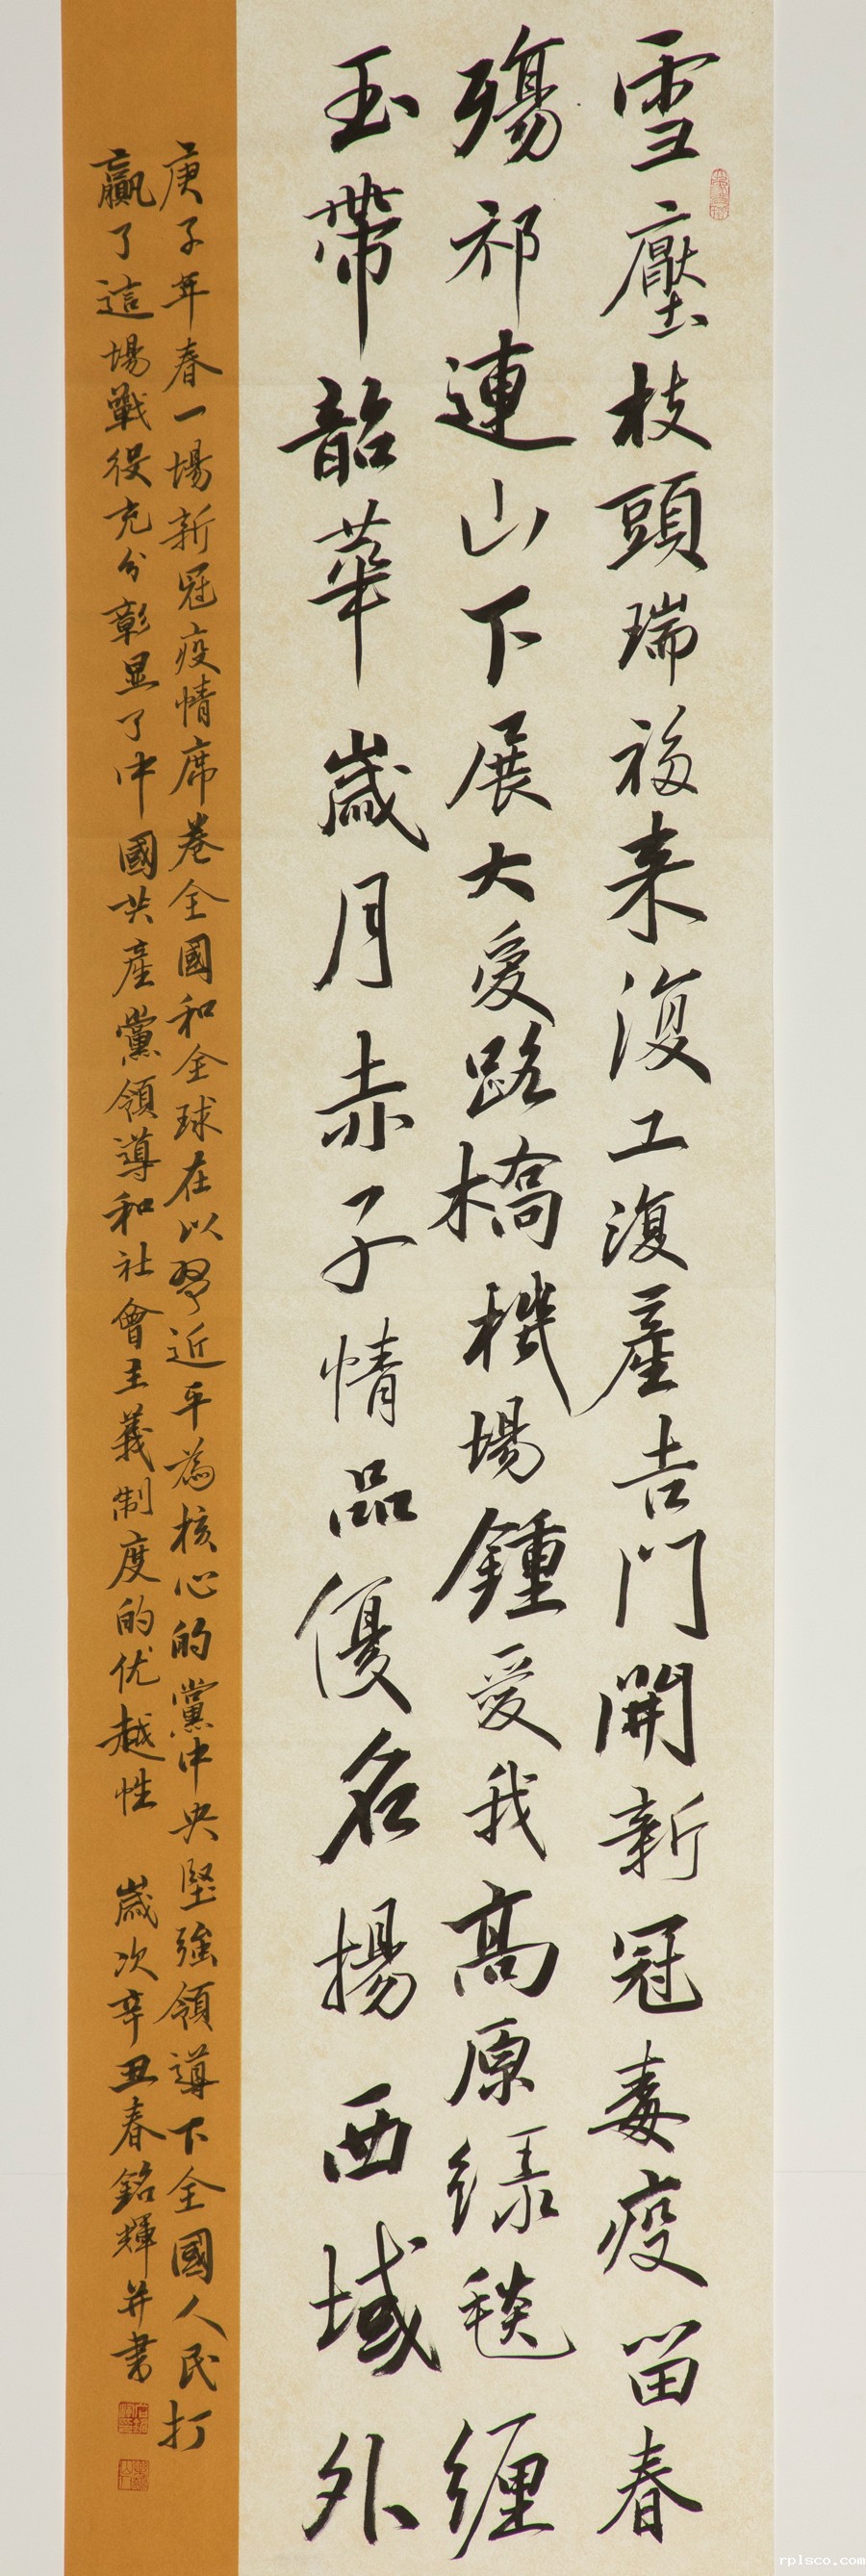 雪壓枝頭瑞福来復工復產吉門開新冠毒疫留春
殤祁連山下展大爱路橋機場鍾爱我高原绿毯缠
玉帶韶華歲月赤子情品優名揚西域外
庚子年春一場新冠疫情席卷全國和全球在以習近平為核心的黨中央堅強領導下全國人民打
贏了這場戰役充分彰显了中國共產黨領導和社會主義制度的优越性 歲次辛丑春銘輝并书
rplsco.com